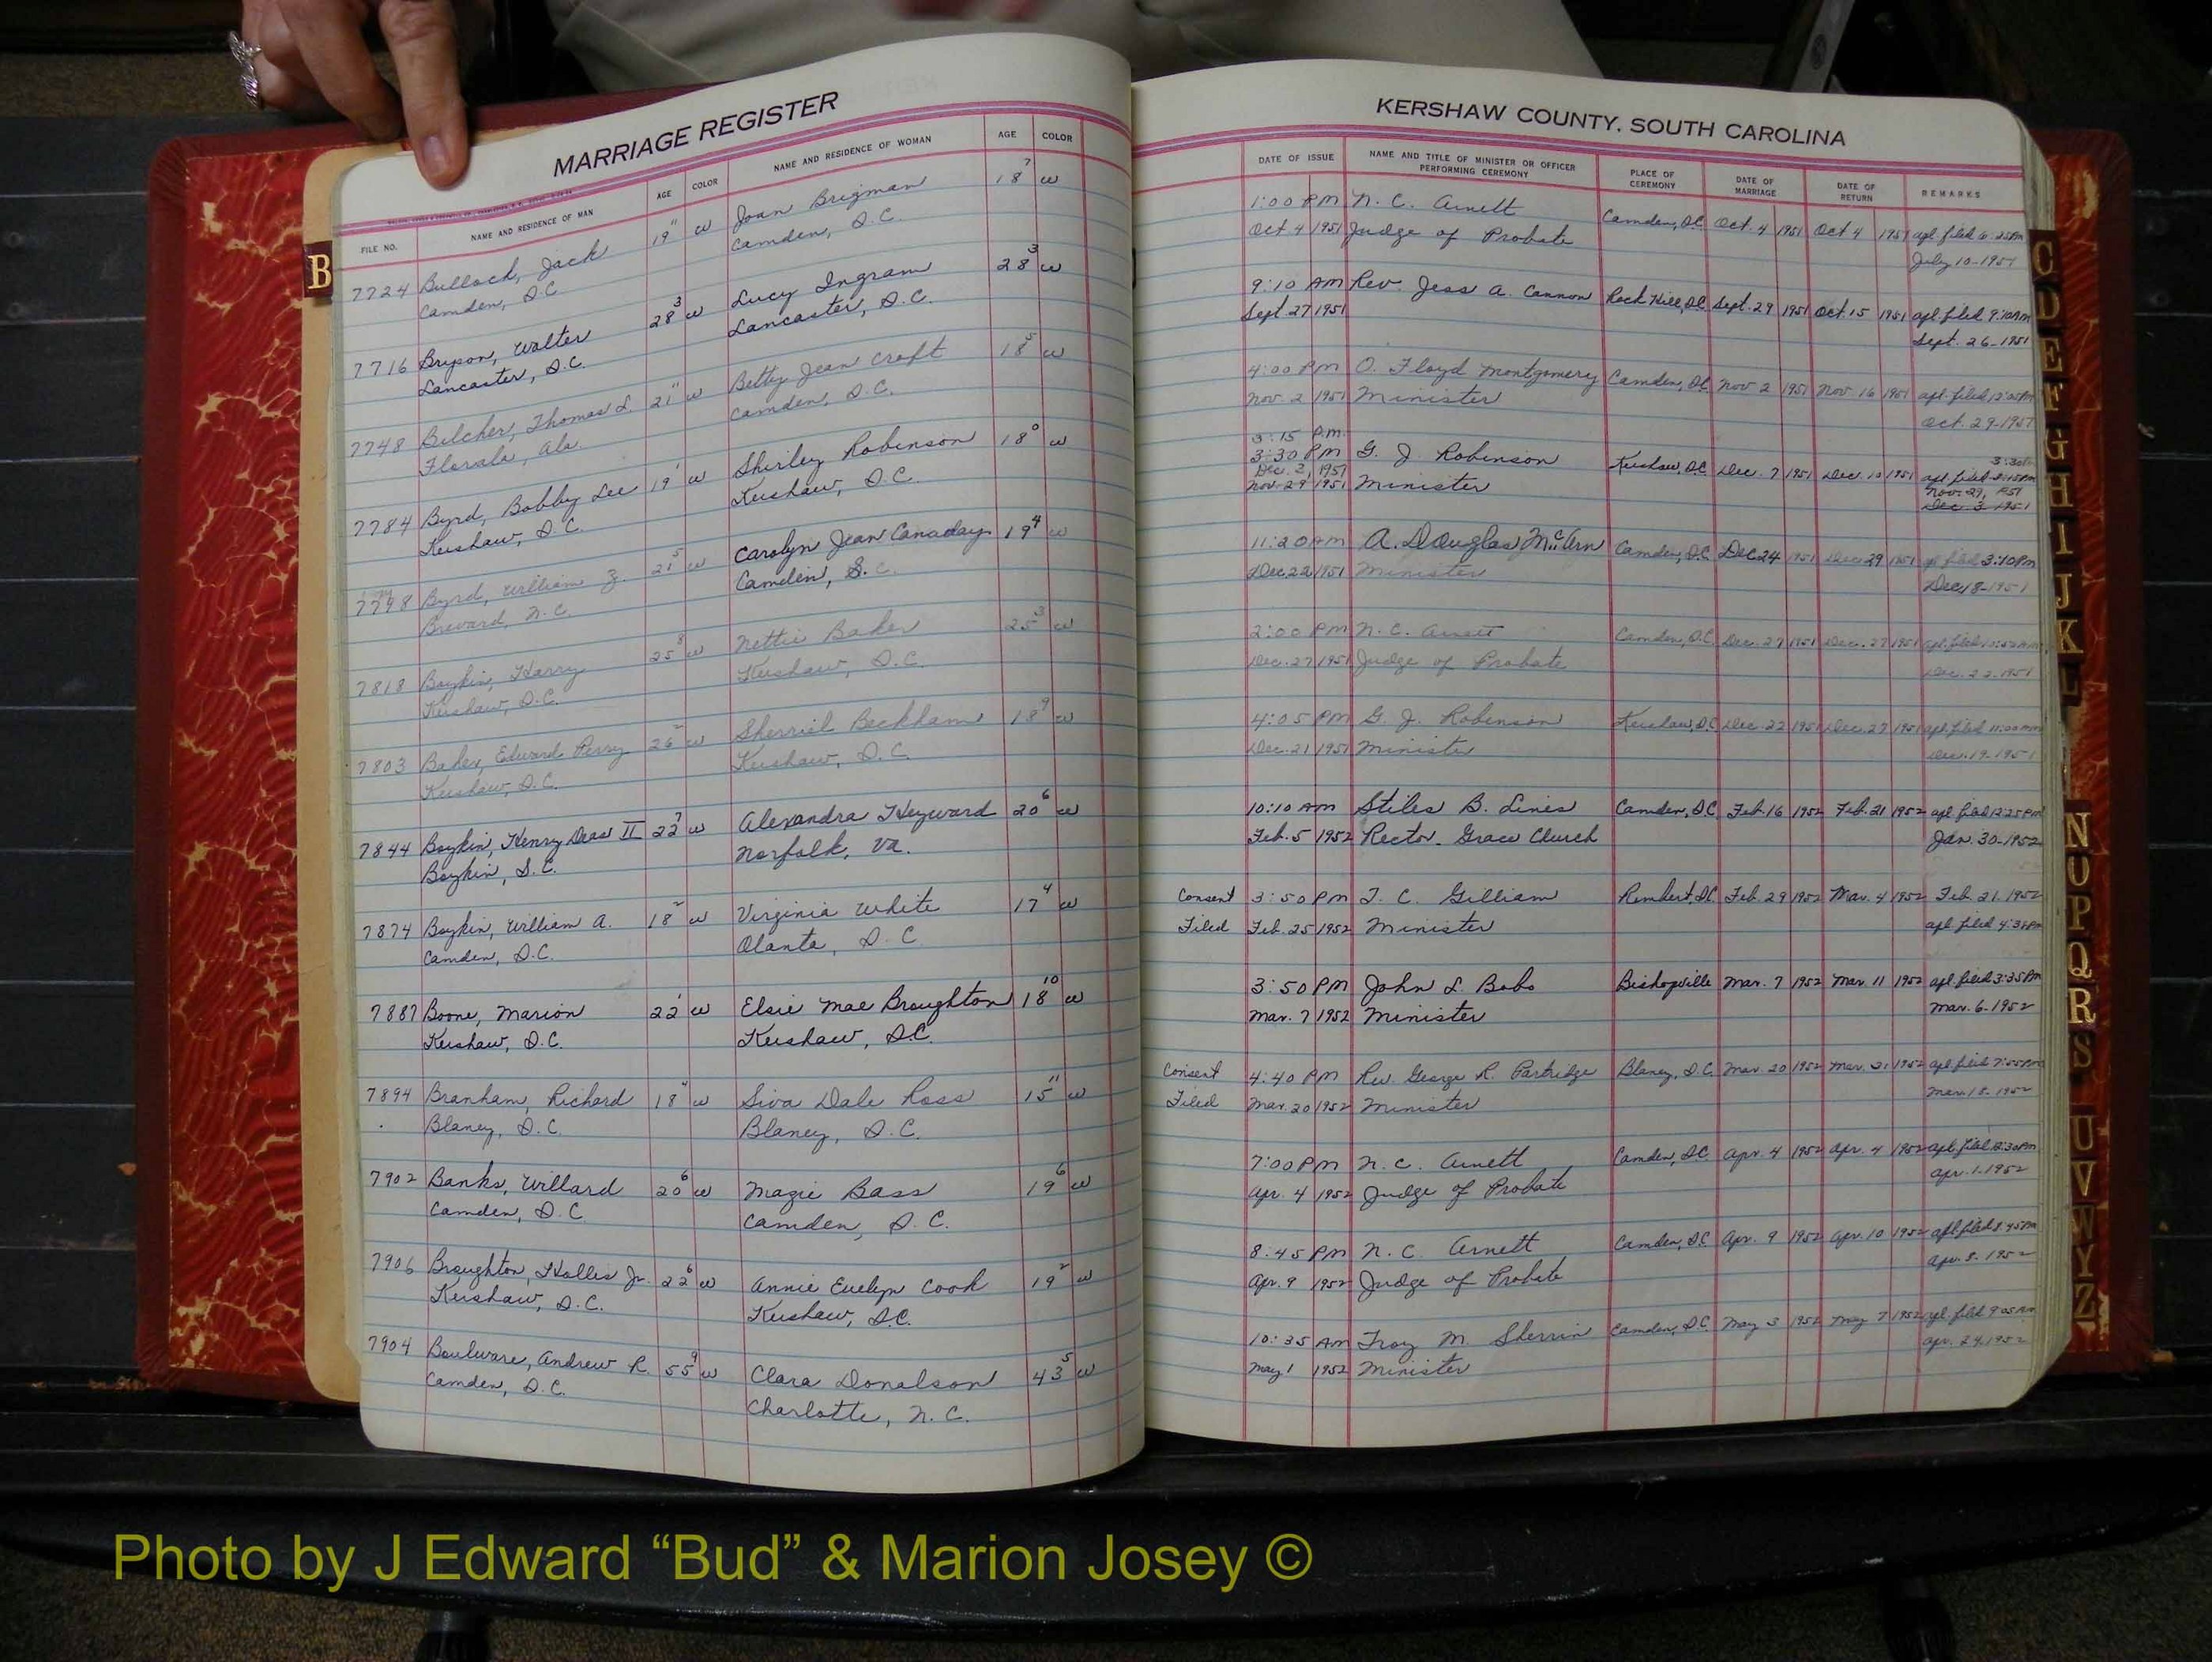 MARRIAGE REGISTER
FILE NO. NAME AND RESIDENCE OF MAN AGE COLOR NAME AND RESIDENCE OF WOMAN AGE COLOR
B
7724 Bullock, Jack 19 11 w Joan Brigman 18 7 w
Camden, S.C. Camden, S.C.
7716 Bryson, Walter 28 3 w Lucy Ingram 28 3 w
Lancaster, S.C. Lancaster, S.C.
7748 Belcher, Thomas L. 21 11 w Betty Jean Croft 18 5 w
Florala, Ala. Camden, S.C.
7784 Byrd, Bobby Lee 19 1 w Shirley Robinson 18 0 w
Kershaw, S.C. Kershaw, S.C.
7798 Byrd, William Z. 21 5 w Carolyn Jean Canaday 19 4 w
Brevard, N.C. Camden, S.C.
7818 Boykin, Harry 25 8 w Nettie Baker 25 3 w
Kershaw, S.C. Kershaw, S.C.
7803 Baker, Edward Perry 26 2 w Sherriel Beckham 18 9 w
Kershaw, S.C. Kershaw, S.C.
7844 Boykin, Henry Deas II 22 7 w Alexandra Heyward 20 6 w
Boykin, S.C. Norfolk, Va.
7874 Boykin, William A. 18 2 w Virginia White 17 4 w
Camden, S.C. Olanta, S.C
7887 Boone, Marion 22 1 w Elsie Mae Broughton 18 10 w
Kershaw, S.C. Kershaw, S.C.
7894 Branham, Richard 18 w Siva Dale Ross 15 11 w
Blaney, S.C. Blaney, S.C.
7902 Banks, Willard 20 6 w Mazie Bass 19 6 w
Camden, S.C Camden, S.C.
7906 Broughton, Hollis Jr. 22 6 w Annie Evelyn Cook 19 2 w
Kershaw, S.C. Kershaw, S.C.
7904 Boulware, Andrew R. 55 9 w Clara Donalson 43 5 w
Camden, S.C. Charlotte, N.C.
KERSHAW COUNTY, SOUTH CAROLINA
DATE OF ISSUE NAME AND TITLE OF MINISTER OR OFFICER PERFORMING CEREMONY PLACE OF CEREMONY DATE OF MARRIAGE DATE OF RETURN REMARKS
1:00 PM N. C. Arnett Camden, S.C. Oct. 4 1951 Oct 4 1951 apl filed
Oct 4 1951 Judge of Probate July 10-1951
9:10 AM Rev. Jess A. Cannon Rock Hill, S.C. Sept. 29 1951 Oct. 15 1951 apl. filed 9:10AM
Sept. 27 1951 Sept. 26-1951
4:00 PM O. Floyd Montgomery Camden, S.C. Nov 2 1951 Nov. 16 1951 apl. filed
Nov. 2 1951 Minister Oct. 29-1951
3:15 P.M.
3:30 PM G. J. Robinson Kershaw, S.C. Dec. 7 1951 Dec. 10 1951 apl. filed
Dec. 2, 1951
Nov. 29 1951 Minister Nov. 29, 1951
Dec. 3 1951
11:20 AM A. Douglas McArn Camden, S.C. Dec 24 1951 Dec 29 1951 apl filed 3:40PM
Dec. 22 1951 Minister Dec. 18-1951
2:00 PM N. C. Arnett Camden, S.C. Dec. 27 1951 Dec. 27 1951 apl. filed
Dec. 27 1951 Judge of Probate Dec. 22. 1951
4:05 PM G. J. Robinson Kershaw, S.C. Dec. 22 1951 Dec. 27 1951 apl. filed 11:00 AM
Dec. 21 1951 Minister Dec. 19-1951
10:10 AM Stiles B. Lines Camden, S.C Feb. 16 1952 Feb. 21 1952 apl filed 12:25PM
Feb. 5 1952 Rector. Grace Church Jan. 30-1952
Consent 3:50 PM T. C. Gilliam Rembert, S.C Feb. 29 1952 Mar. 4 1952 Feb. 21. 1952
Filed Feb. 25 1952 Minister apl filed
3:50 PM John L. Bobo Bishopville Mar. 7 1952 Mar. 11 1952 apl. filed 3:35PM
Mar. 7 1952 Minister Mar. 6-1952
Consent 4:40 PM Rev. George R. Partridge Blaney, S.C. Mar. 20 1952 Mar. 21 1952 apl filed 7:55PM
Filed Mar. 20 1952 Minister Mar. 18-1952
7:00 PM N. C. Arnett Camden, S.C. Apr. 4 1952 Apr. 4 1952 apl. filed
Apr. 4 1952 Judge of Probate Apr. 1. 1952
8:45 PM N. C. Arnett Camden, S.C Apr. 9 1952 Apr. 10 1952 apl. filed
Apr. 9 1952 Judge of Probate Apr. 8. 1952
10:35 AM Troy M. Sherrin Camden, S.C May 3 1952 May 7 1952 apl. filed 9:05AM
May 1 1952 Minister Apr. 24. 1952
C
D
E
F
G
H
I
J
K
L
N
O
P
Q
R
S
U
V
W
Y
Z
Photo by J Edward “Bud” & Marion Josey ©